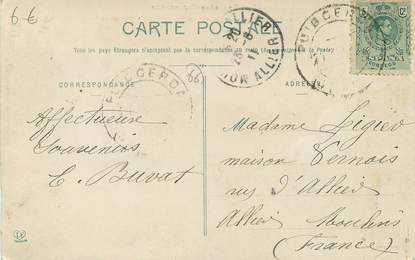 6€
CARTE POSTALE
Tous les pays Etrangers n'acceptent pas la correspondance au
CORRESPONDANCE
ADRESSE
66
PUIGCERDA
ALLIER
20
MOULINS ALLIER
PUIGCERDA
Affectueux
Souvenirs
E. Buvat
Madame Ligier
maison Vernois
rue d'Allier
Allier Moulins
(France)